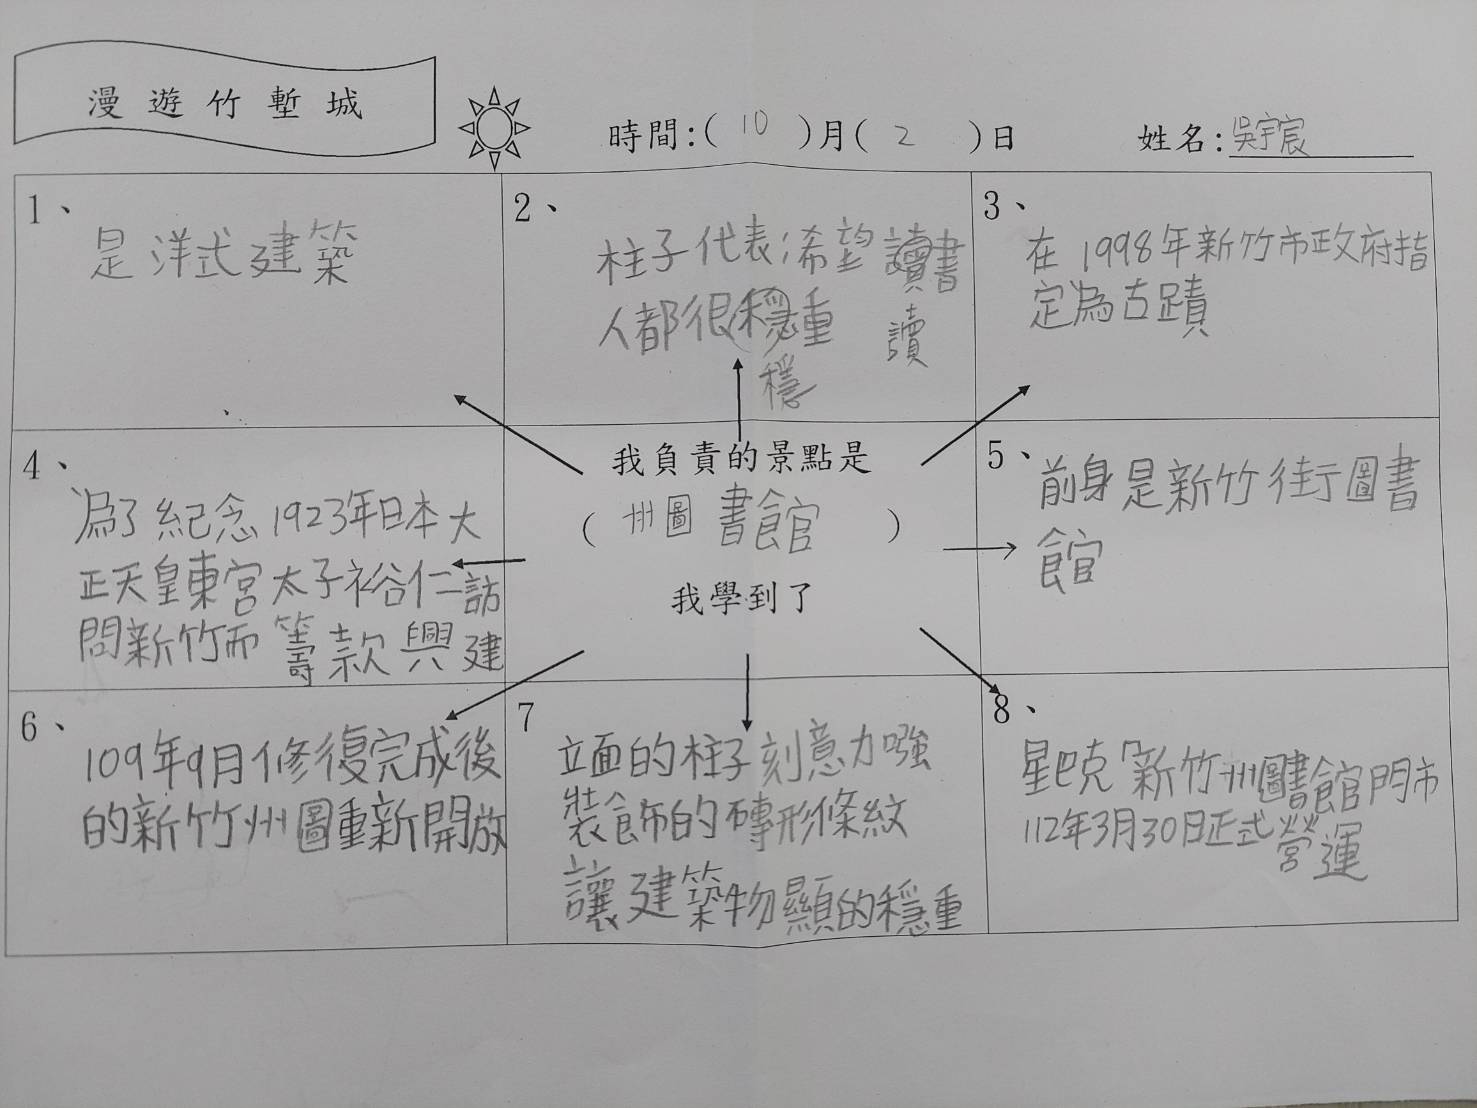 漫遊竹塹城
時間:( 10 )月( 2 )日
姓名:吳宇宸
1、
是洋式建築
2、
柱子代表希望讀書
人都很穩重
讀
穩
3、
在1998年新竹市政府指
定為古蹟
4、
為了紀念1923年日本大
正天皇東宮太子裕仁訪
問新竹而籌款興建
我負責的景點是
( 州圖書館 )
我學到了
5、
前身是新竹街圖書
館
6、
109年9月修復完成後
的新竹州圖重新開放
7
立面的柱子刻意加強
裝飾的磚形條紋
讓建築物顯的穩重
8、
星巴克「新竹州圖書館門市
112年3月30日正式營運